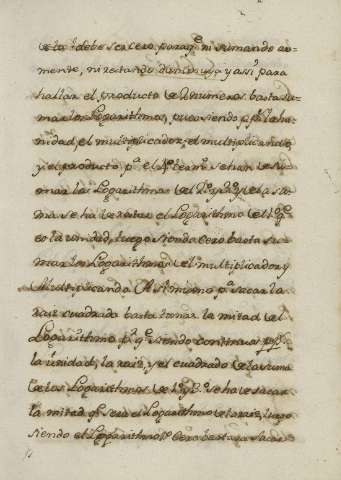 debe ser cero para q̃ ni sumando au-
mente, ni restando diminuya y assi para
hallar el producto de 2 numeros basta su-
mar los Logarithmos, pues siendo la u-
nidad, el multiplicador, el multiplicando,
y el producto se han de su-
mar los Logarithmos del y de la su-
ma se ha de restar el Logarithmo del
es la unidad, luego siendo cero basta su-
mar los Logarithmos del multiplicador y
Multiplicando. Assi mismo p.ª sacar la
raiz cuadrada basta tomar la mitad del
Logarithmo p.ª q̃ siendo continuas
la unidad, la raiz, y el cuadrado de la suma
de los Logarithmos se ha de sacar
la mitad q̃ sera el Logarithmo de la raiz, luego
siendo el Logarithmo cero basta sacar